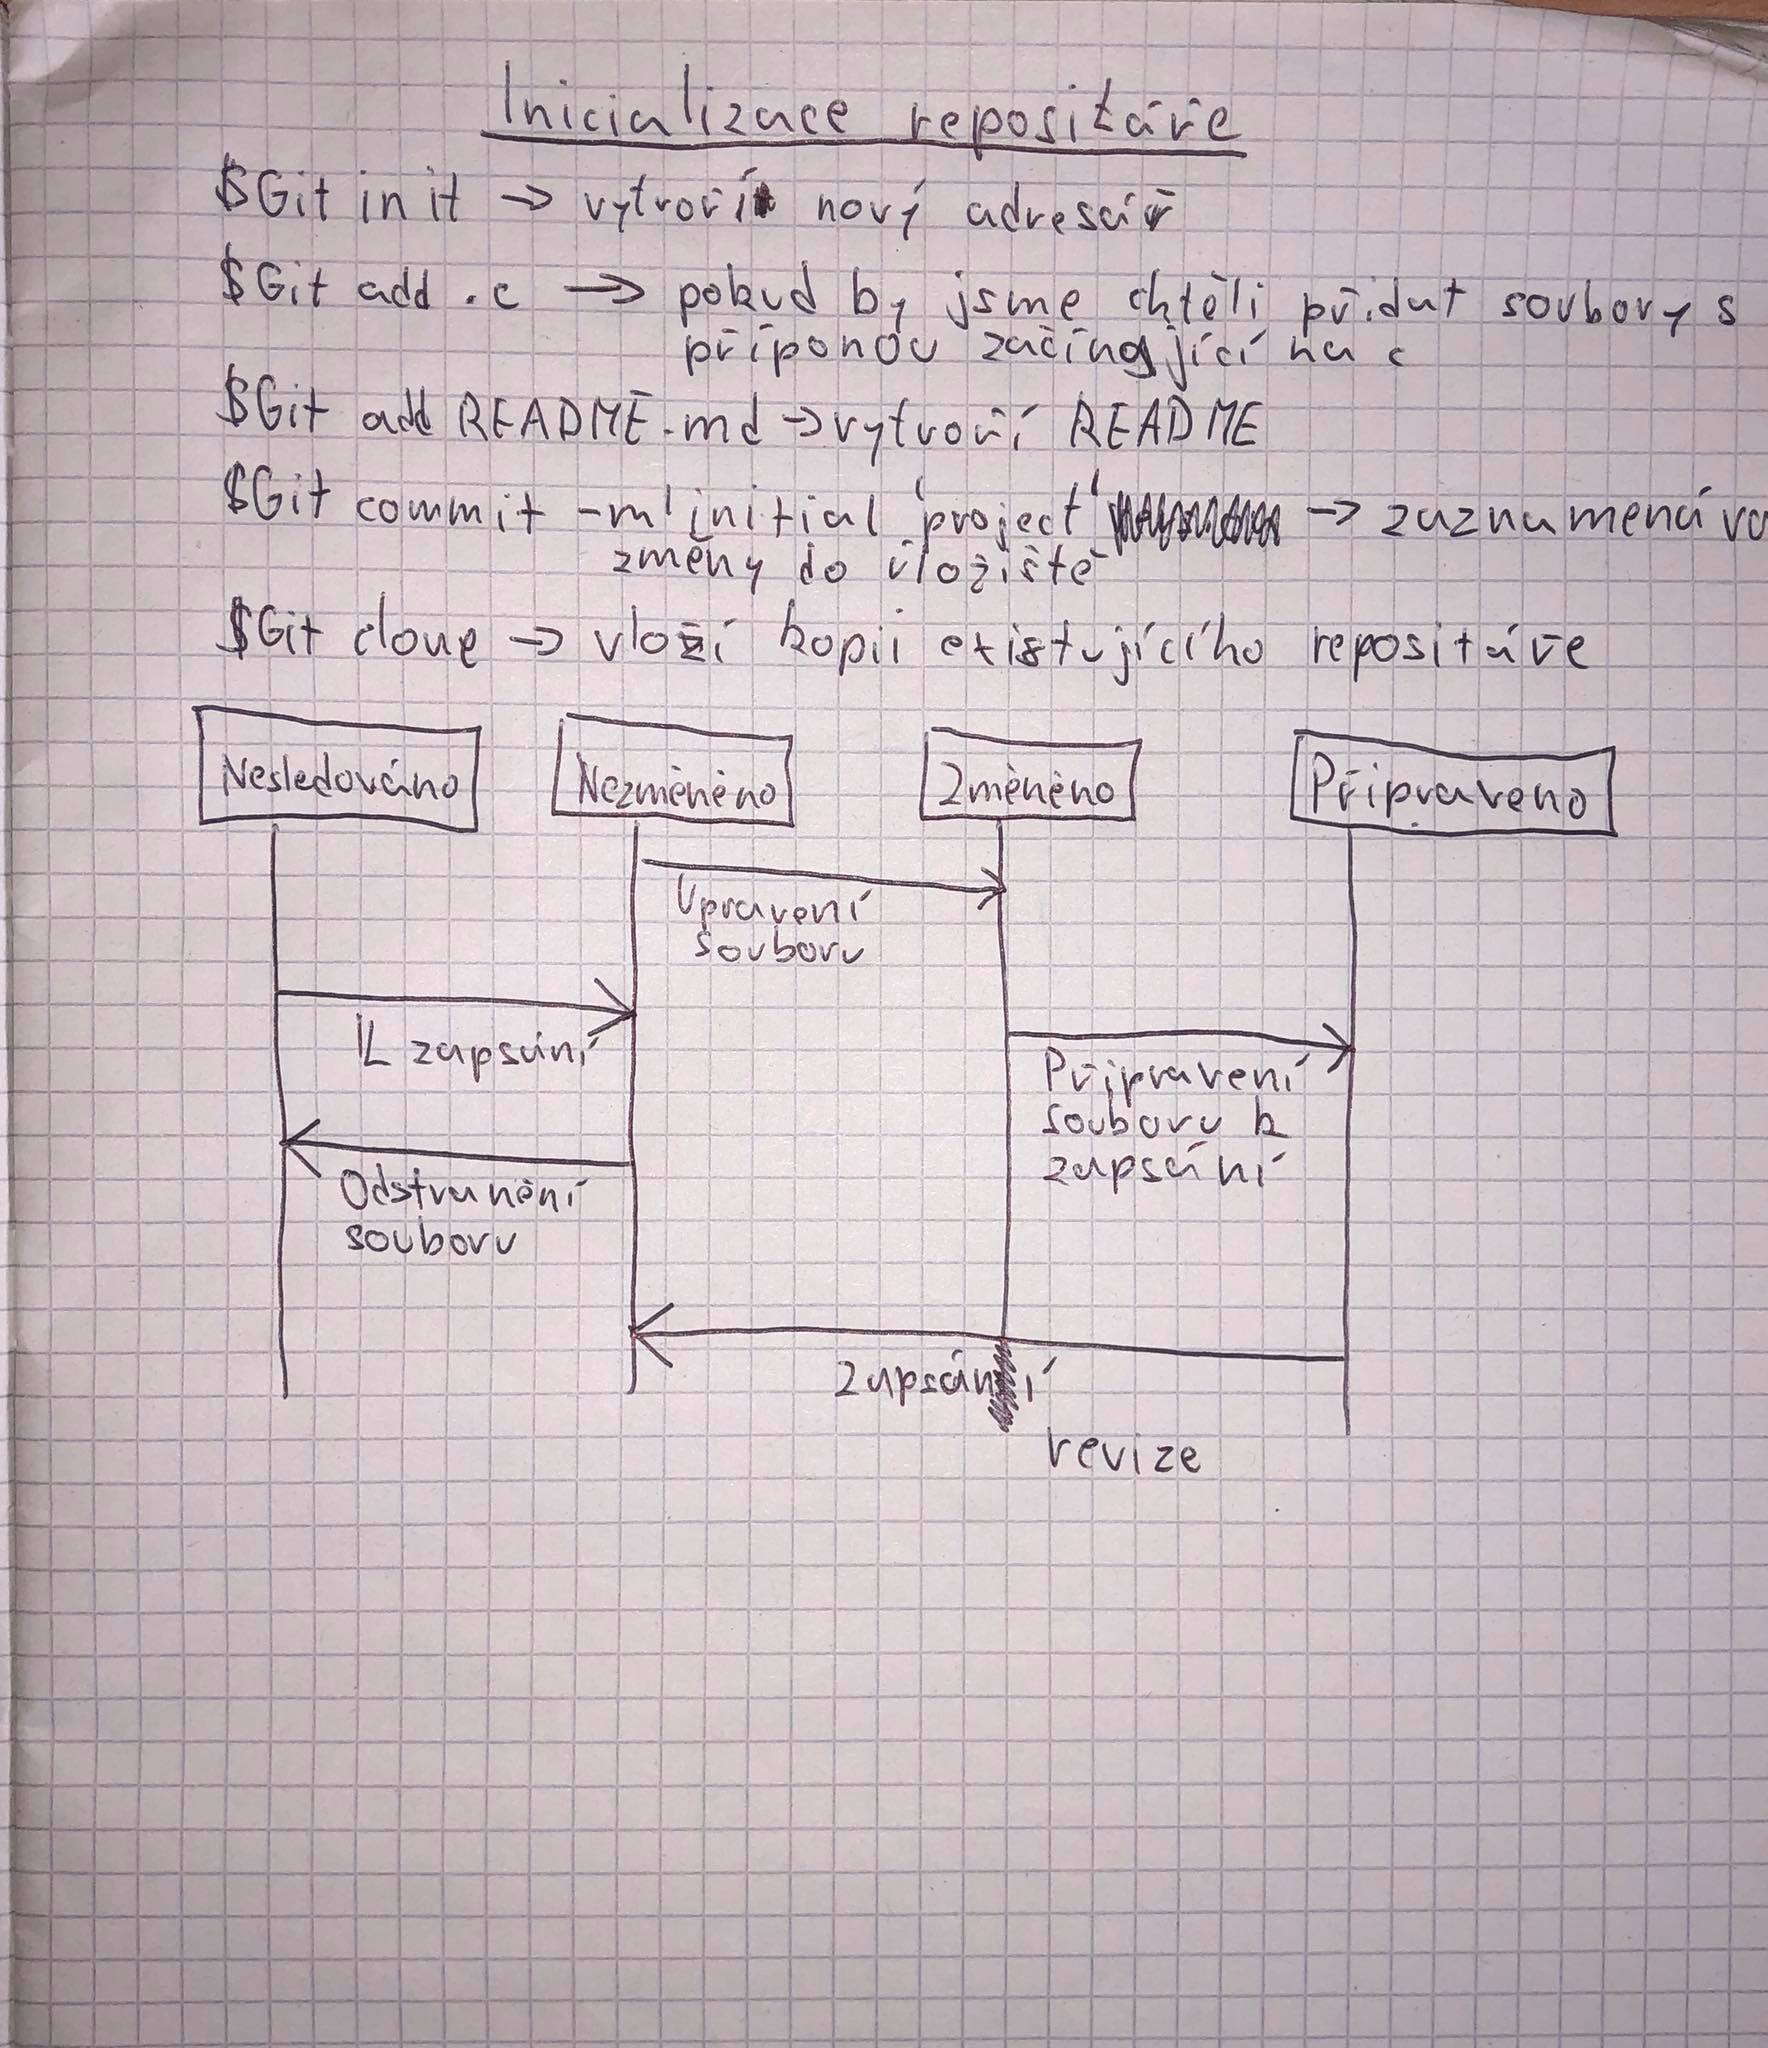 Inicializace repositáře
$Git init → vytvoří nový adresář
$Git add .c → pokud by jsme chtěli přidat soubory s
příponou začínající na c
$Git add README.md → vytvoří README
$Git commit -m 'initial project' → zaznamená
změny do úložiště
$Git clone → vloží kopii existujícího repositáře
Nesledováno Nezměněno Změněno Připraveno
Upravení
souboru
K zapsání
Připravení
souboru k
zapsání
Odstranění
souboru
Zapsání
revize